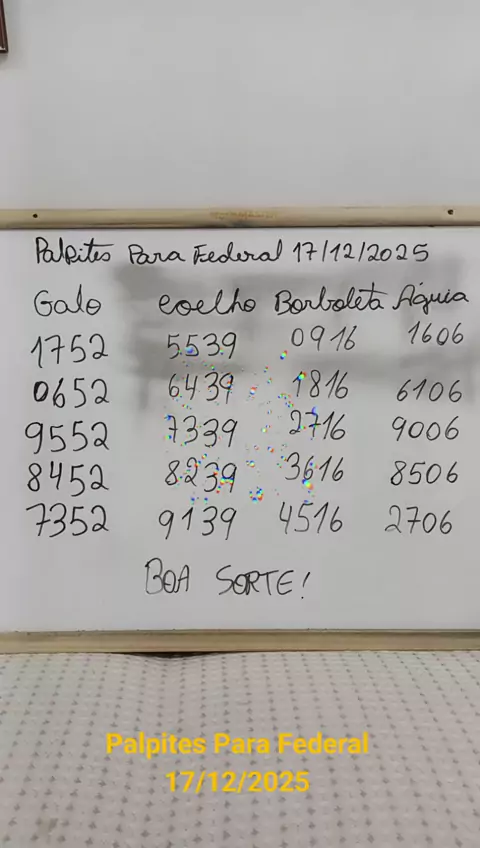 Palpites Para Federal 17/12/2025
Galo Coelho Borboleta Águia
1752 5539 0916 1606
0652 6439 1816 6106
9552 7339 2716 9006
8452 8239 3616 8506
7352 9139 4516 2706
BOA SORTE!
Palpites Para Federal
17/12/2025